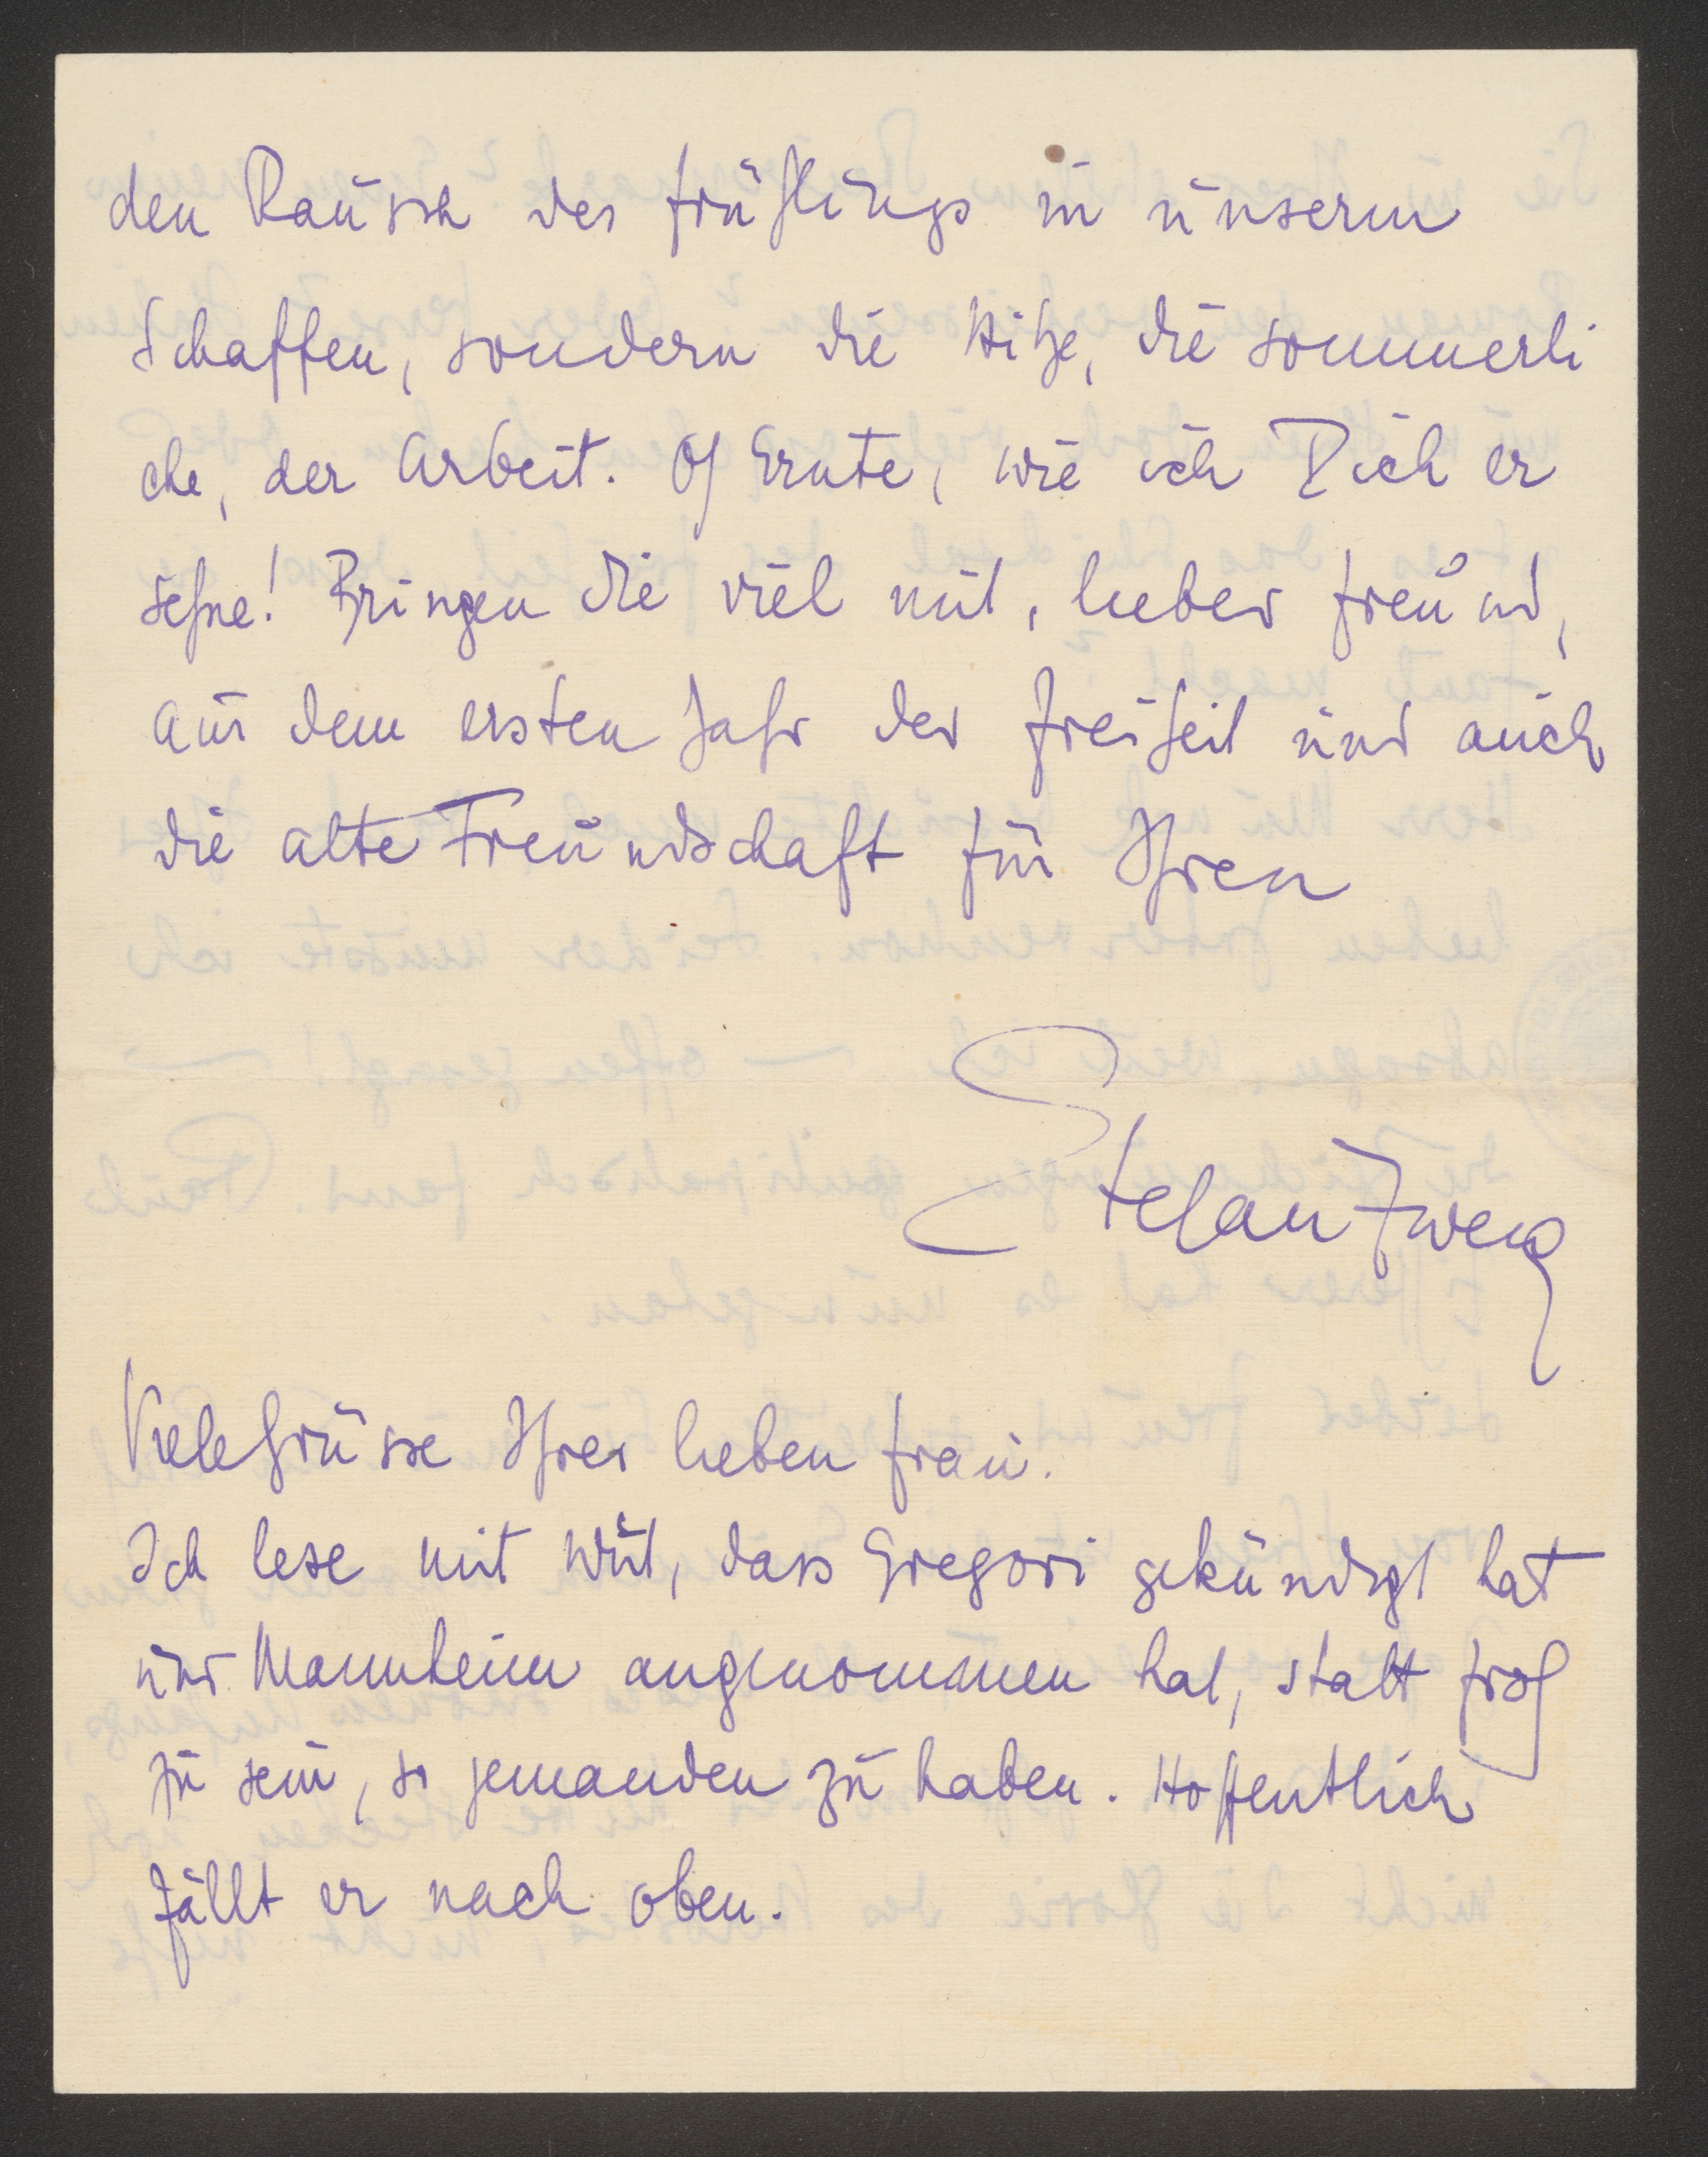 den Rausch des Frühlings in unserm
Schaffen, sondern die Hitze, die sommerli
che, der Arbeit. Oh Ernte, wie ich Dich er
sehne! Bringen Sie viel mit, lieber Freund,
aus dem ersten Jahr der Freiheit und auch
die alte Freundschaft für Ihren
Stefan Zweig
Viele Grüsse Ihrer lieben Frau.
Ich lese mit Wut, dass Gregori gekündigt hat
und Mannheim angenommen hat, statt froh
zu sein, so jemanden zu haben. Hoffentlich
fällt er nach oben.